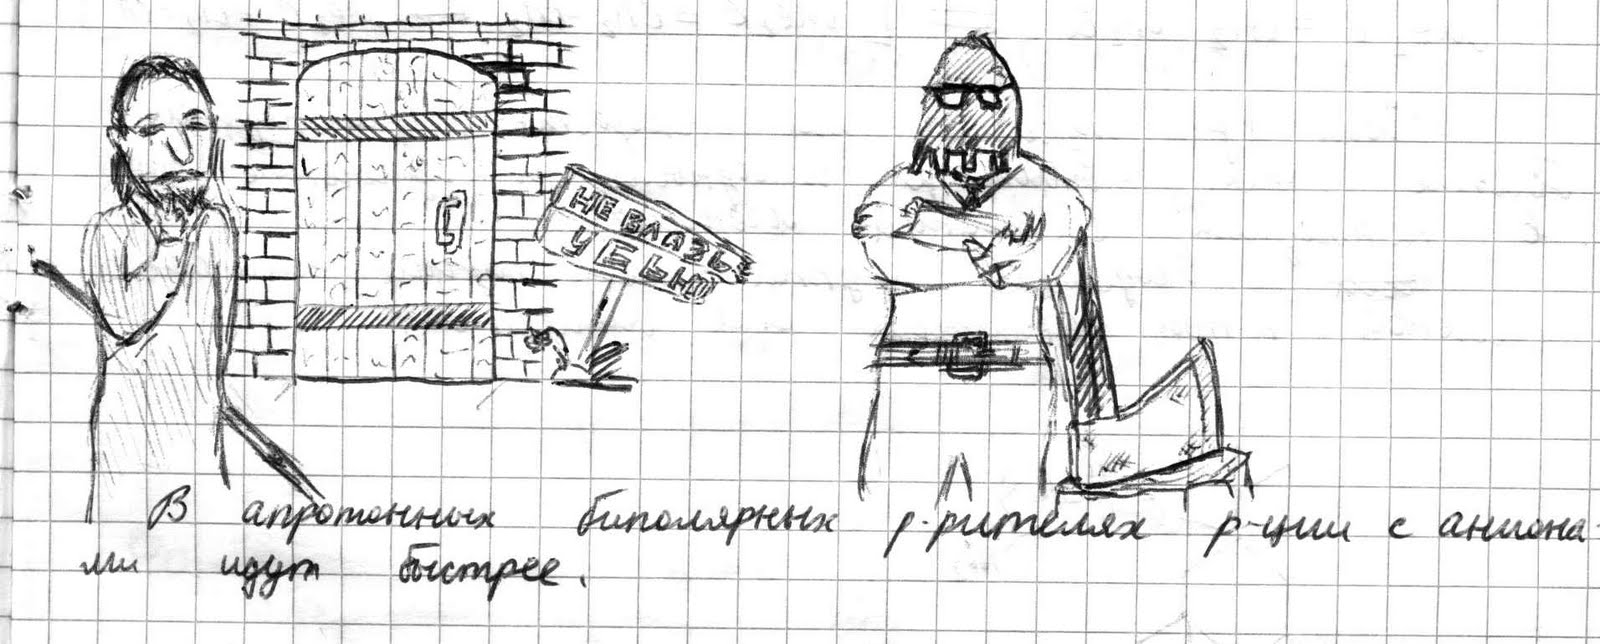 НЕ ВЛАЗЬ
УБЬЮ
В апротонных биполярных р-рителях р-ции с аниона-
ми идут быстрее.